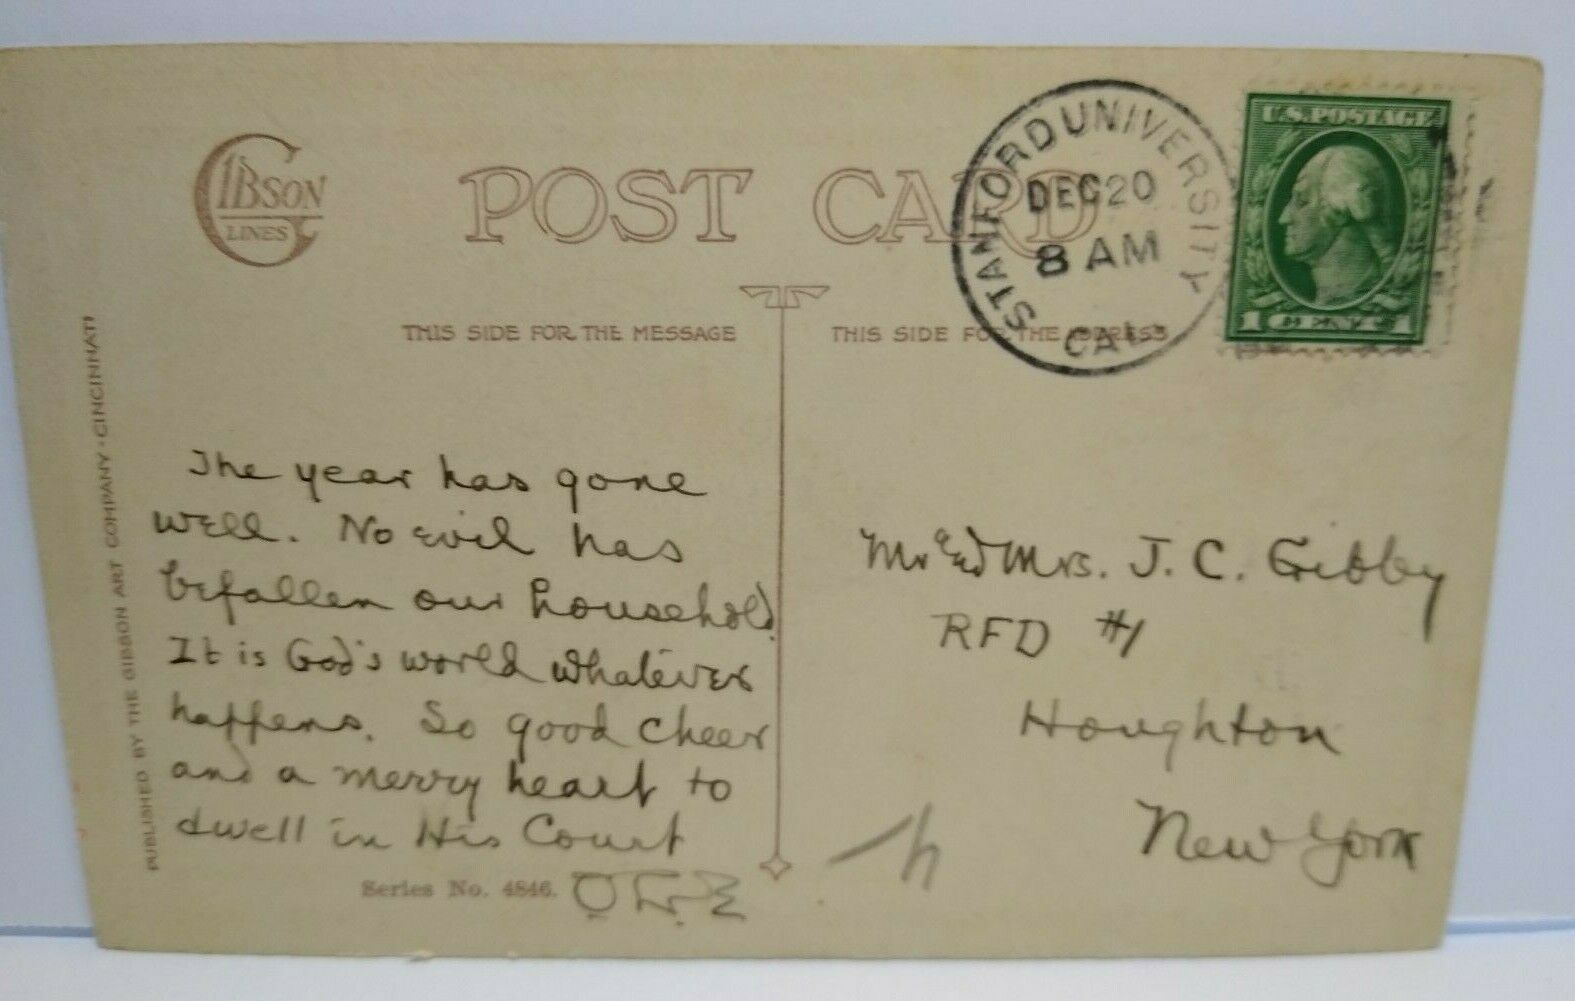 GIBSON
LINES
POST CARD
STANFORD UNIVERSITY
DEC 20
8 AM
CAL.
U.S. POSTAGE
1 CENT 1
THIS SIDE FOR THE MESSAGE
THIS SIDE FOR THE ADDRESS
PUBLISHED BY THE GIBSON ART COMPANY - CINCINNATI
The year has gone
well. No evil has
befallen our household.
It is God's world whatever
happens. So good cheer
and a merry heart to
dwell in His Court
Series No. 4846.
Mrs. J. C. Gibby
RFD #1
Houghton
New York